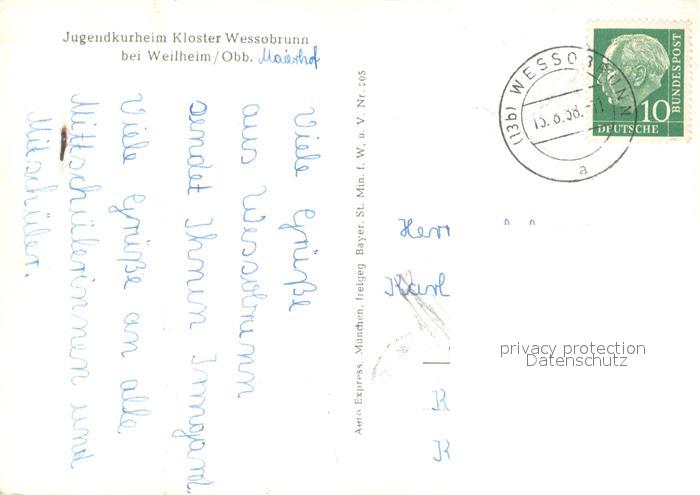 Jugendkurheim Kloster Wessobrunn
bei Weilheim/Obb. Maierhof
Viele Grüße
aus Wessobrunn
sendet Ihnen Irmgard.
Viele Grüße an alle
Mittschülerinnen und
Mitschüler.
Aero Express, München, freigeg Bayer. St. Min. f. W. u. V. Nr. 205
(13b) WESSOBRUNN
15.8.58.-11
a
DEUTSCHE
BUNDESPOST
10
Herr
Karl
K
K
privacy protection
Datenschutz